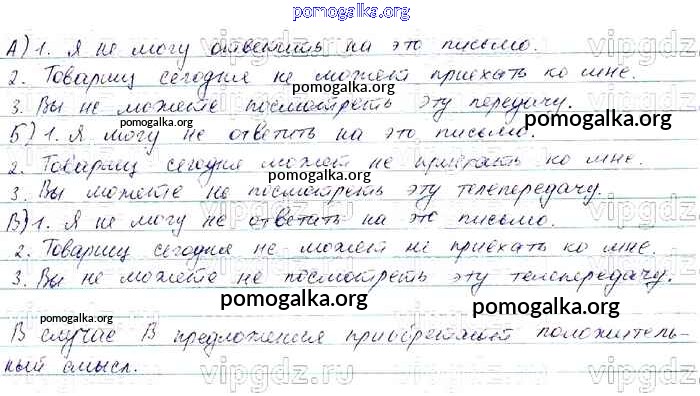 pomogalka.org
А) 1. Я не могу ответить на это письмо.
2. Товарищ сегодня не может приехать ко мне.
pomogalka.org
3. Вы не можете посмотреть эту передачу.
pomogalka.org
pomogalka.org
Б) 1. Я могу не ответить на это письмо.
2. Товарищ сегодня может не приехать ко мне.
pomogalka.org
3. Вы можете не посмотреть эту телепередачу.
vipgdz.ru
В) 1. Я не могу не ответить на это письмо.
2. Товарищ сегодня не может не приехать ко мне.
3. Вы не можете не посмотреть эту телепередачу.
pomogalka.org
pomogalka.org
pomogalka.org
В случае В предложения приобретают положитель-
ный смысл.
vipgdz.ru